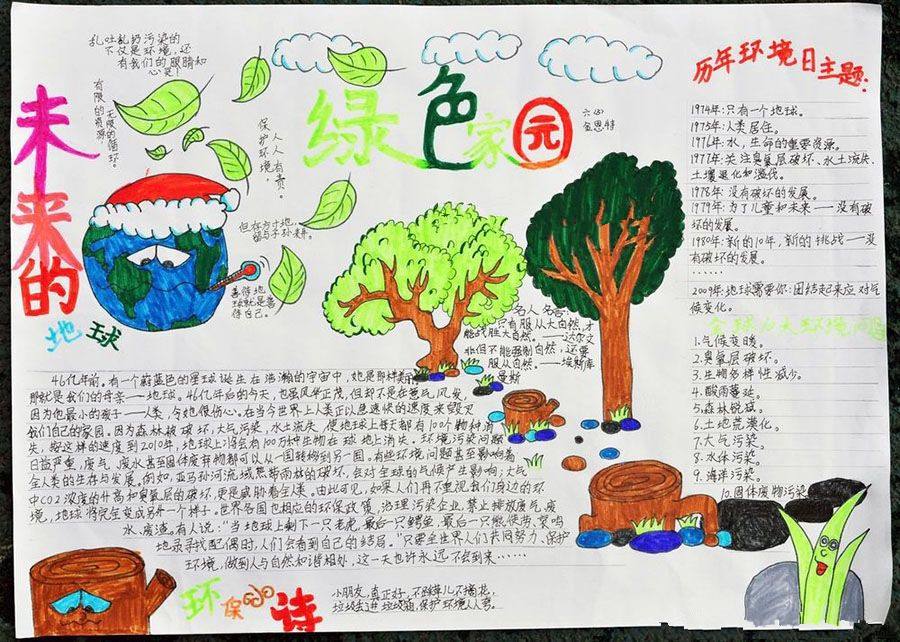 未来的
地球
乱吐乱扔污染的
不仅是环境,还
有我们的眼睛和
心灵!
有限的资源,
无限的循环。
保护环境,
人人有责。
但存方寸地,
留与子孙耕。
善待地
球就是善
待自己。
绿色家园
六(4)
历年环境日主题:
1974年:只有一个地球。
1975年:人类居住。
1976年:水,生命的重要资源。
1977年:关注臭氧层破坏、水土流失、
土壤退化和滥伐。
1978年:没有破坏的发展。
1979年:为了儿童和未来——没有破
坏的发展。
1980年:新的10年,新的挑战——没
有破坏的发展。
……
2009年:地球需要你:团结起来应对气
候变化。
全球九大环境问题
1.气候变暖。
2.臭氧层破坏。
3.生物多样性减少。
4.酸雨蔓延。
5.森林锐减。
6.土地荒漠化。
7.大气污染。
8.水体污染。
9.海洋污染。
10.固体废物污染
名人名言:
只有服从大自然,才
能战胜大自然。——达尔文
非但不能强制自然,还要
服从自然。——埃斯库
曼斯
46亿年前,有一个蔚蓝色的星球诞生在浩瀚的宇宙中,她是那样美
那就是我们的母亲——地球。46亿年后的今天,也虽风华正茂,但却不是在意气风发,
因为她最小的孩子——人类,令她很伤心。在当今世界上人类正以急速快的速度来毁灭
我们自己的家园。因为森林被破坏,大气污染,水土流失,使地球上每天都有100个物种消
失,按这样的速度到2010年,地球上将会有100万种生物在球地上消失。环境污染问题
日益严重,废气、废水甚至固体废弃物都可以从一国转构到另一国。有些环境问题甚至影响着
全人类的生存与发展。例如,亚马孙河流域热带雨林的破坏,会对全球的气候产生影响;大气
中CO2深度的升高和臭氧层的破坏,更是威胁着全人类。由此可见,如果人们再不重视我们身边的环
境,地球将完全变成另外一个样子。世界各国也相应的环保政策,治理污染企业,禁止排放废气,废
水、废渣。有人说:“当地球上剩下一只老虎,最后一只鳄鱼,最后一只熊
地求寻找配偶时,人们会看到自己的结局。”只要全世界人们共同努力,保护
环境,做到人与自然和谐相处,这一天也许永远不会到来……
环保小诗
小朋友,真正好,不踩草儿不摘花,
垃圾丢进垃圾箱,保护环境人人夸。